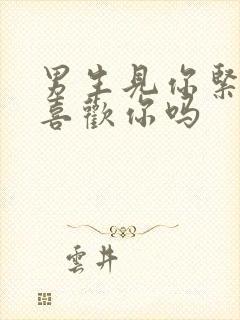 男生見你緊
喜歡你吗
雲井